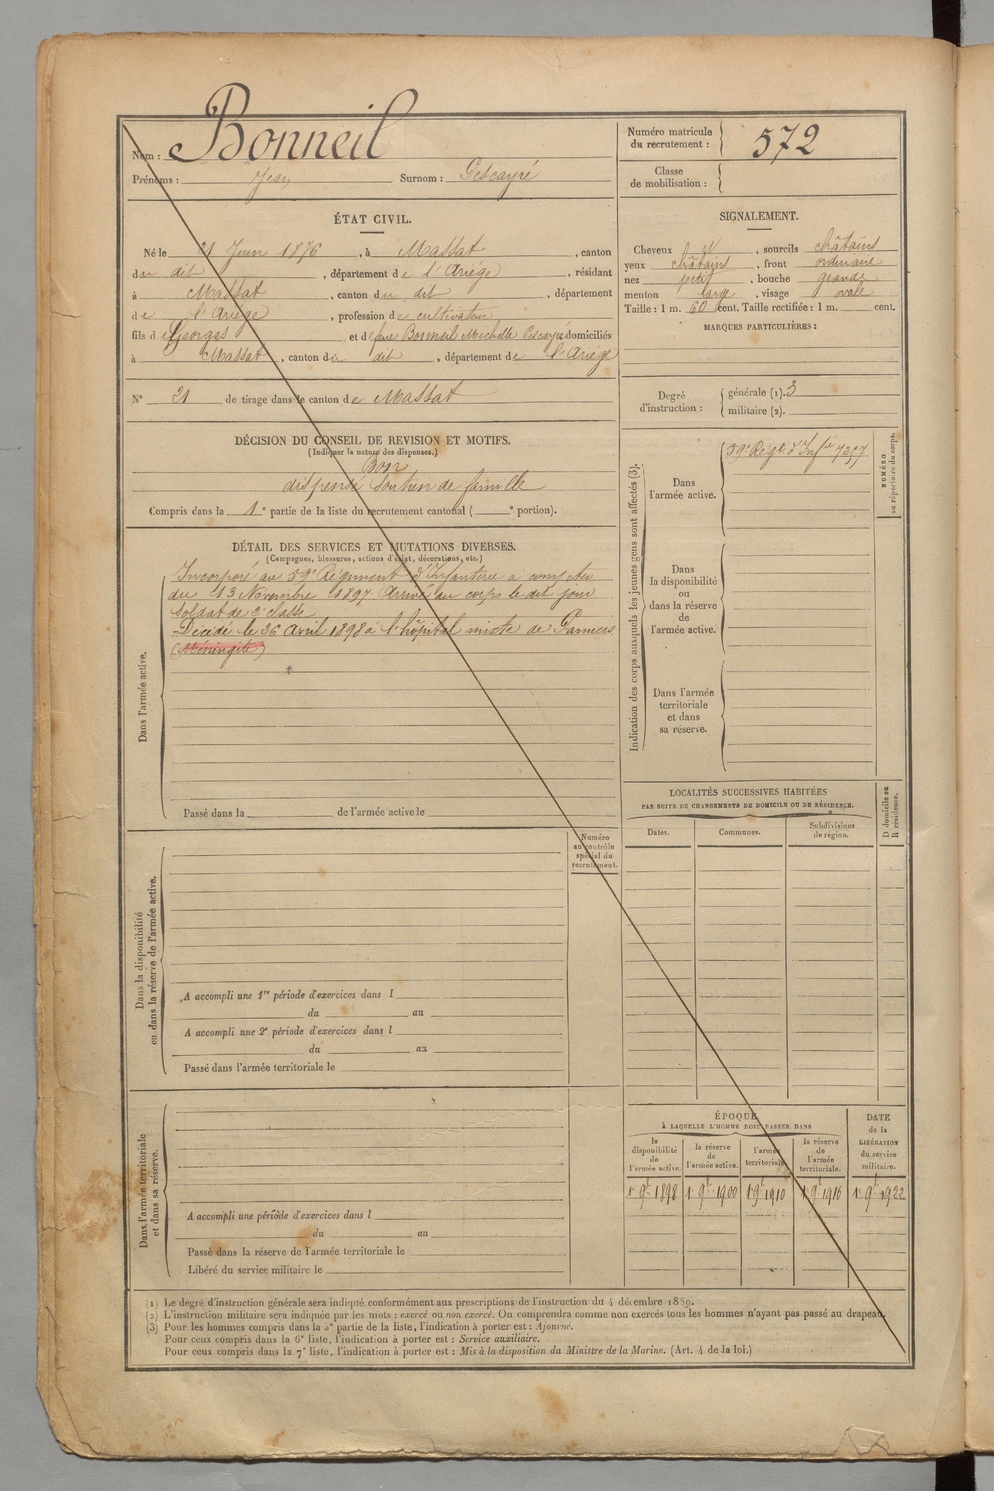 Nom : Bonneil
Prénoms : Jean Surnom : Pescayré
Numéro matricule du recrutement : 572
Classe de mobilisation :
ÉTAT CIVIL.
Né le 21 Juin 1876, à Massat, canton
du dit, département de l'Ariège, résidant
à Massat, canton du dit, département
de l'Ariège, profession de cultivateur
fils de Georges et de feue Bonneil Michelle Pescayré domiciliés
à Massat, canton du dit, département de l'Ariège
N° 21 de tirage dans le canton de Massat
SIGNALEMENT.
Cheveux , sourcils châtains
yeux châtains, front ordinaire
nez petit, bouche grande
menton large, visage ovale
Taille : 1 m. 60 cent. Taille rectifiée : 1 m. cent.
MARQUES PARTICULIÈRES :
Degré d'instruction : générale (1). 3
militaire (2).
DÉCISION DU CONSEIL DE REVISION ET MOTIFS.
(Indiquer la nature des dispenses.)
Bon
dispensé soutien de famille
Compris dans la 1e partie de la liste du recrutement cantonal ( e portion).
DÉTAIL DES SERVICES ET MUTATIONS DIVERSES.
(Campagnes, blessures, actions d'éclat, décorations, etc.)
Dans l'armée active.
Incorporé au 59e Régiment d'Infanterie à compter
du 13 Novembre 1897 Arrivé au corps le dit jour
soldat de 2e classe
Décédé le 26 Avril 1898 à l'hôpital mixte de Pamiers
(Méningite)
Passé dans la de l'armée active le
Indication des corps auxquels les jeunes gens sont affectés (3).
Dans l'armée active.
59e Régt d'Infie 7257
NUMÉRO au répertoire du corps.
Dans la disponibilité ou dans la réserve de l'armée active.
Dans l'armée territoriale et dans sa réserve.
LOCALITÉS SUCCESSIVES HABITÉES
PAR SUITE DE CHANGEMENTS DE DOMICILE OU DE RÉSIDENCE.
Dates. Communes. Subdivisions de région.
D domicile ou R résidence.
Numéro au contrôle spécial du recrutement.
Dans la disponibilité ou dans la réserve de l'armée active.
A accompli une 1re période d'exercices dans l
du au
A accompli une 2e période d'exercices dans l
du au
Passé dans l'armée territoriale le
Dans l'armée territoriale et dans sa réserve.
A accompli une période d'exercices dans l
du au
Passé dans la réserve de l'armée territoriale le
Libéré du service militaire le
ÉPOQUE
À LAQUELLE L'HOMME DOIT PASSER DANS
la disponibilité de l'armée active. la réserve de l'armée active. l'armée territoriale. la réserve de l'armée territoriale.
DATE de la LIBÉRATION du service militaire.
1r 9bre 1898 1r 9bre 1900 1r 9bre 1910 1r 9bre 1916 1r 9bre 1922
(1) Le degré d'instruction générale sera indiqué conformément aux prescriptions de l'instruction du 4 décembre 1889.
(2) L'instruction militaire sera indiquée par les mots : exercé ou non exercé. On comprendra comme non exercés tous les hommes n'ayant pas passé au drapeau.
(3) Pour les hommes compris dans la 5e partie de la liste, l'indication à porter est : Ajourné.
Pour ceux compris dans la 6e liste, l'indication à porter est : Service auxiliaire.
Pour ceux compris dans la 7e liste, l'indication à porter est : Mis à la disposition du Ministre de la Marine. (Art. 4 de la loi.)